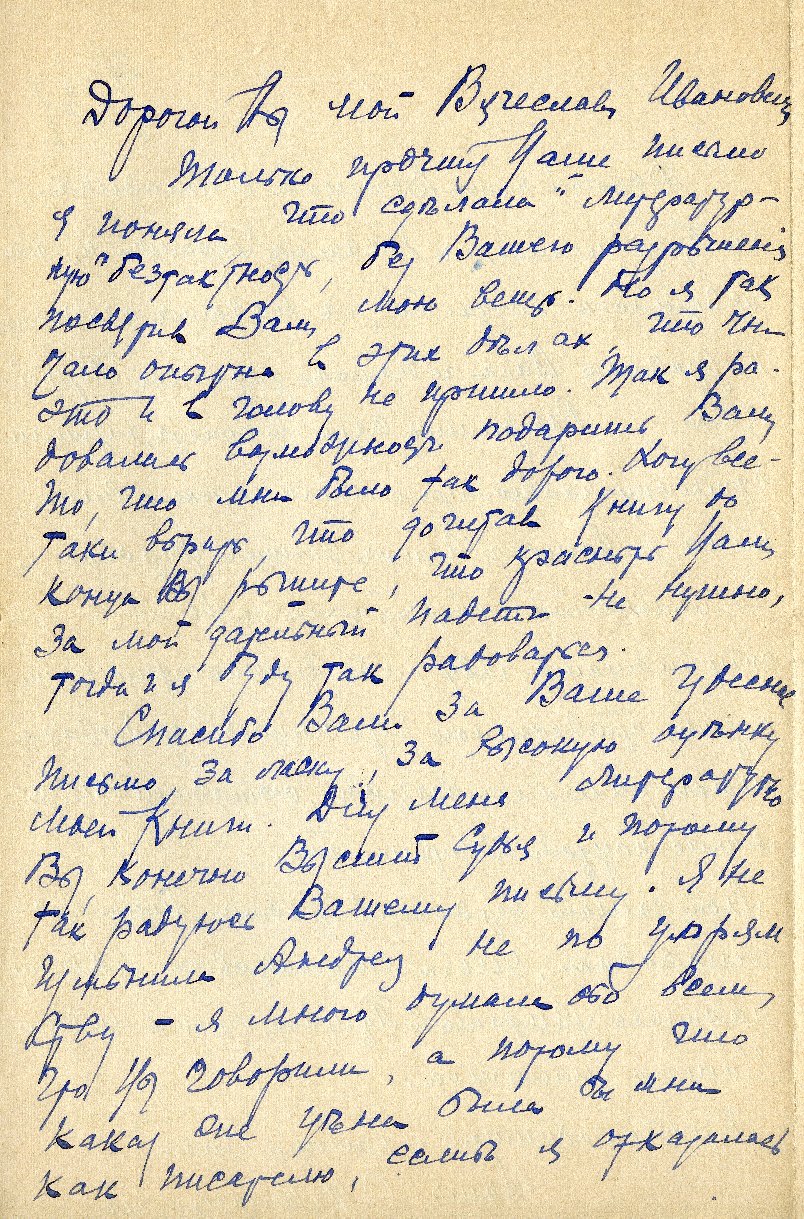 Дорогой Вы мой Вячеславъ Ивановичъ
Только прочтя Ваше письмо
я поняла, что сдѣлала "литератур-
ную" безтактность, безъ Вашего разрѣшенія
посвятивъ Вамъ мою вещь. Но я такъ
мало опытна въ этихъ дѣлахъ, что мнѣ
это и въ голову не пришло. Такъ я ра-
довалась возможности подарить Вамъ
то, что мнѣ было такъ дорого. Хочу все-
таки вѣрить, что дочитавъ книгу до
конца Вы рѣшите, что краснѣть Вамъ
за мой не нужно,
тогда и я буду такъ радоваться.
Спасибо Вамъ за Ваше чудесное
письмо, за ласку, за высокую оцѣнку
моей книги. Для меня литературно
Вы, конечно Высшій Судья и потому
такъ радуюсь Вашему письму. Я не
измѣнила Андрея не по упрям
ству - я много думала обо всемъ,
что Вы говорили, а потому что
какая же цѣна была бы мнѣ
какъ писателю, еслибъ я отказалась